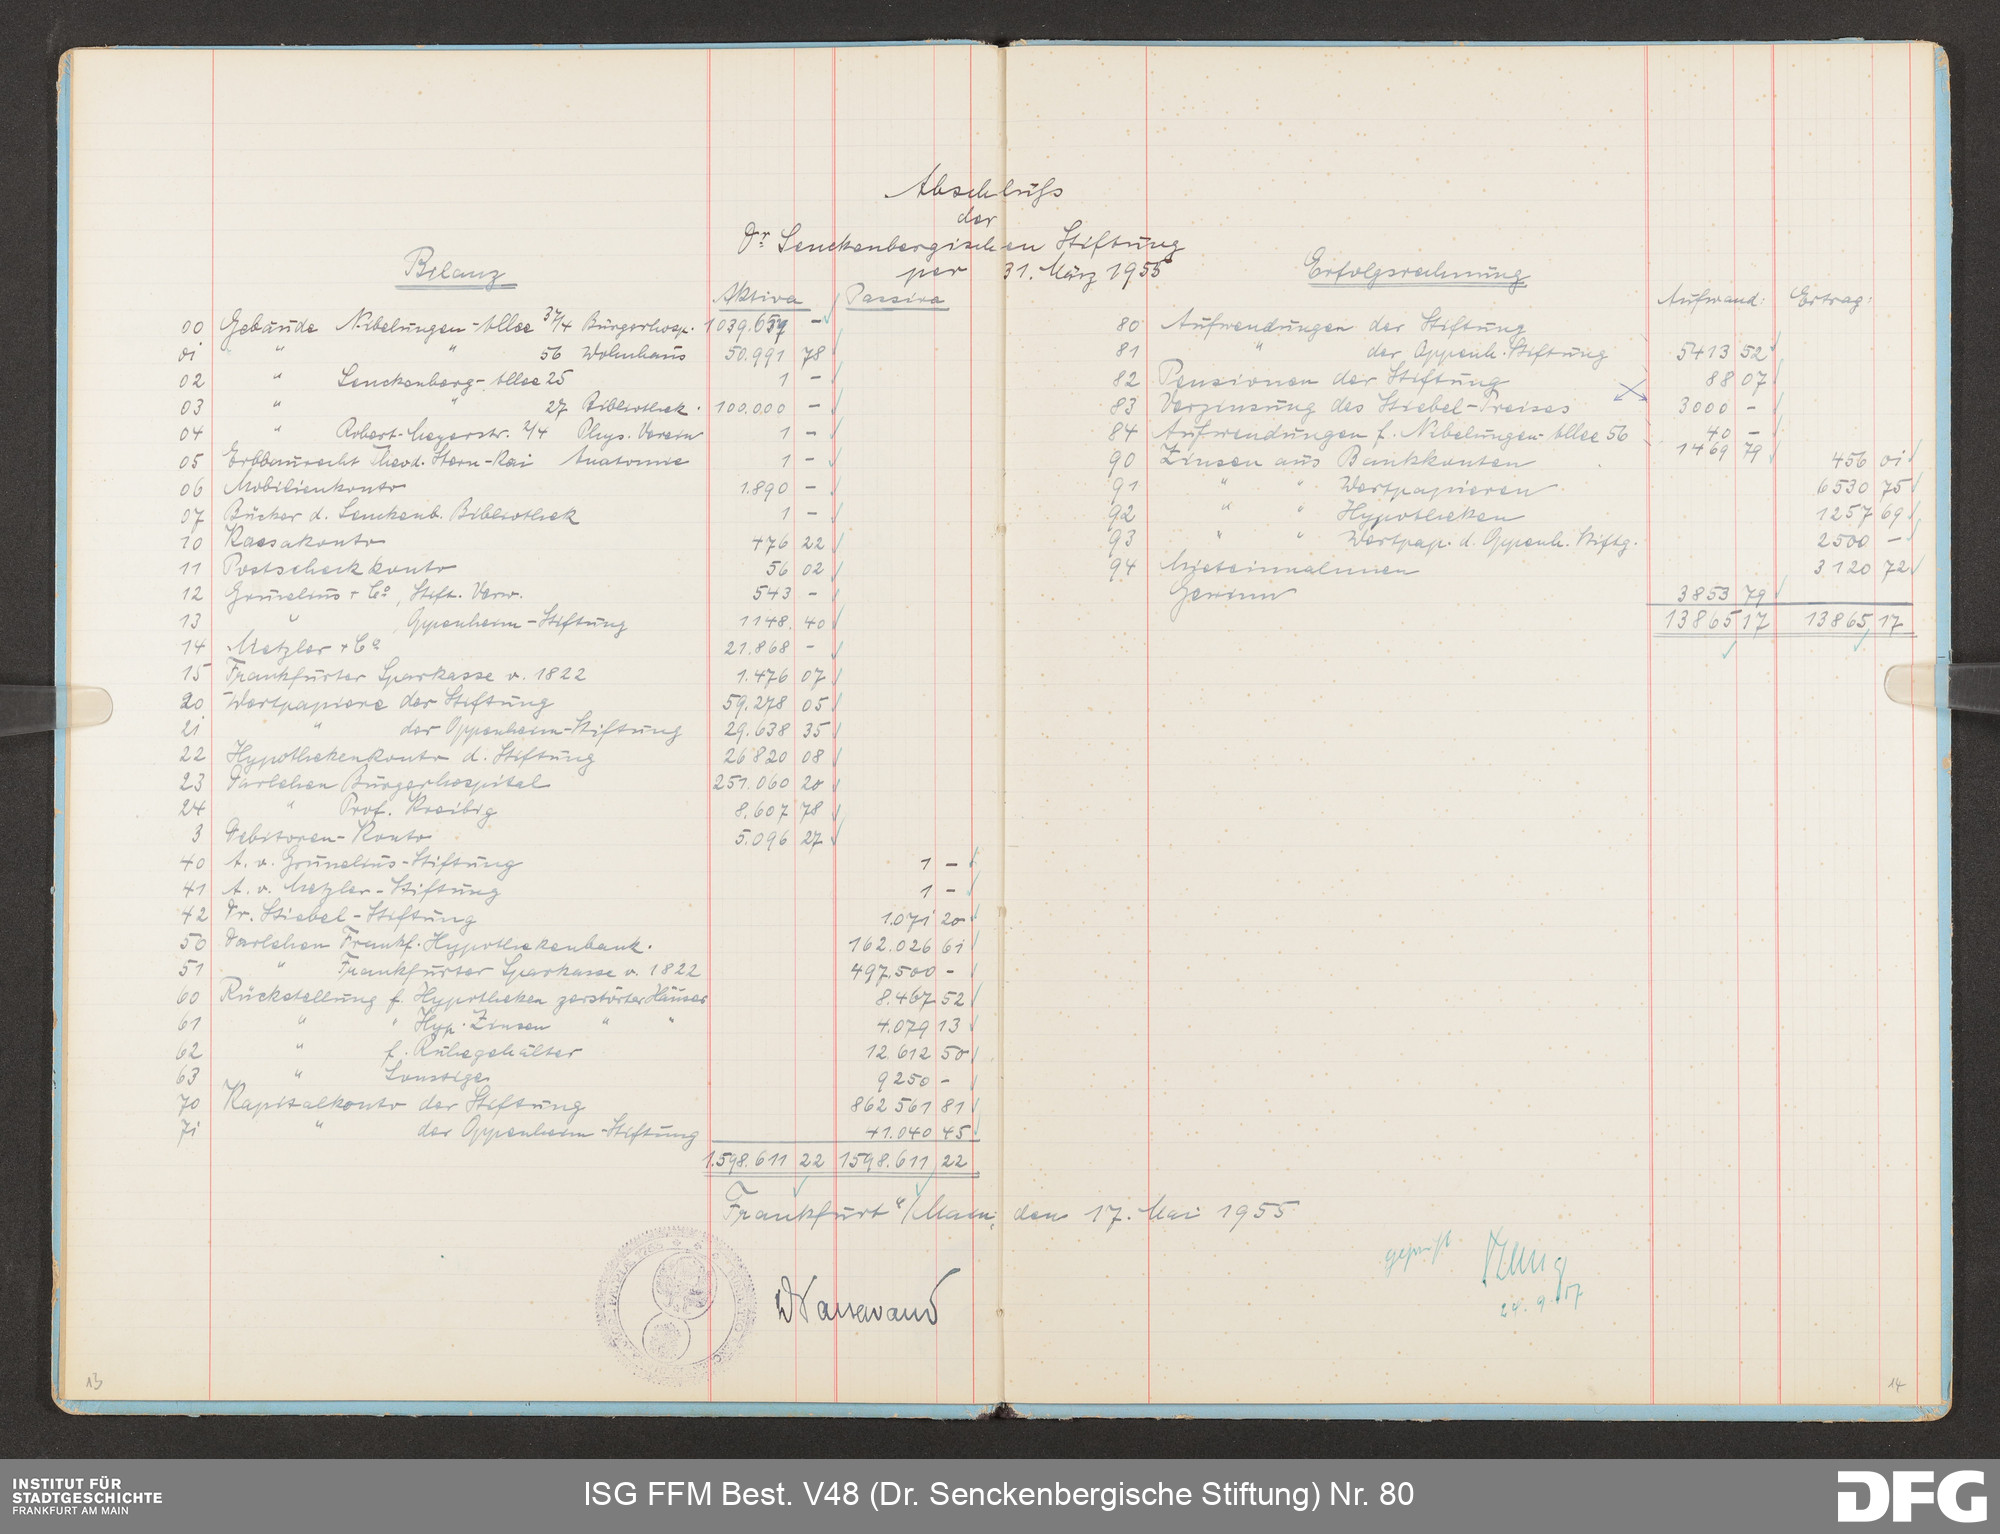 Abschluß
der
Dr. Senckenbergischen Stiftung
per 31. März 1955
Bilanz
Aktiva Passiva
00 Gebäude Nibelungen-Allee 37/4 Bürgerhosp. 1039.659 –
01 " " 56 Wohnhaus 50.991 78
02 " Senckenberg-Allee 25 1 –
03 " " 27 Bibliothek. 100.000 –
04 " Robert-Mayerstr. 2/4 Phys. Verein 1 –
05 Erbbaurecht Theod. Stern-Kai Anatomie 1 –
06 Mobilienkonto 1.890 –
07 Bücher d. Senckenb. Bibliothek 1 –
10 Kassakonto 476 22
11 Postscheckkonto 56 02
12 Grunelius + Co, Stift. Verw. 543 –
13 " , Oppenheim-Stiftung 1148. 40
14 Metzler + Co 21.868 –
15 Frankfurter Sparkasse v. 1822 1.476 07
20 Wertpapiere der Stiftung 59.278 05
21 " der Oppenheim-Stiftung 29.638 35
22 Hypothekenkonto d. Stiftung 26820 08
23 Darlehen Bürgerhospital 251.060 20
24 " Prof. Kreibig 8.607 78
3 Debitoren-Konto 5.096 27
40 A. v. Grunelius-Stiftung 1 –
41 A. v. Metzler-Stiftung 1 –
42 Dr. Stiebel-Stiftung 1.071 20
50 Darlehen Frankf. Hypothekenbank. 162.026 61
51 " Frankfurter Sparkasse v. 1822 497.500 –
60 Rückstellung f. Hypotheken zerstörter Häuser 8.467 52
61 " " Hyp. Zinsen " " 4.079 13
62 " f. Ruhegehälter 12.612 50
63 " Sonstige 9250 –
70 Kapitalkonto der Stiftung 862561 81
71 " der Oppenheim-Stiftung 41.040 45
1.598.611 22 1598.611 22
Erfolgsrechnung
Aufwand: Ertrag:
80 Aufwendungen der Stiftung 5413 52
81 " der Oppenh. Stiftung 88 07
82 Pensionen der Stiftung 3000 –
83 Verzinsung des Stiebel-Preises 40 –
84 Aufwendungen f. Nibelungen-Allee 56 1469 79
90 Zinsen aus Bankkonten 456 01
91 " " Wertpapieren 6530 75
92 " " Hypotheken 1257 69
93 " " Wertpap. d. Oppenh. Stiftg. 2500 –
94 Mieteinnahmen 3120 72
Gewinn 3853 79
13865 17 13865 17
Frankfurt a/Main, den 17. Mai 1955
geprüft
24. 9. 57
13
14
INSTITUT FÜR
STADTGESCHICHTE
FRANKFURT AM MAIN
ISG FFM Best. V48 (Dr. Senckenbergische Stiftung) Nr. 80
DFG